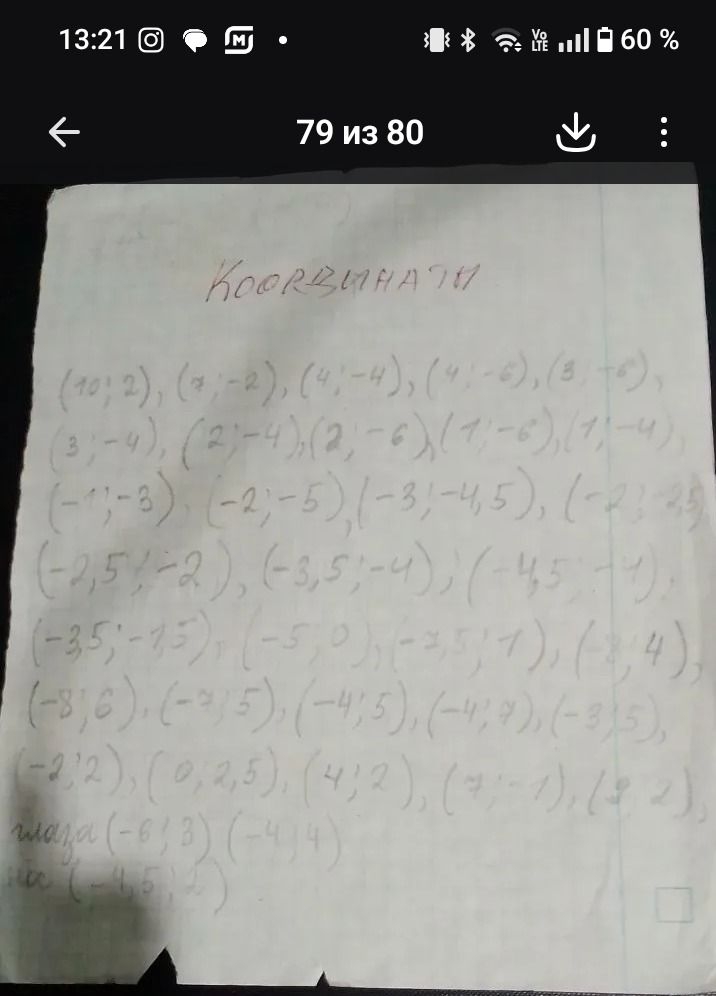 13:21 M Vo LTE 60 %
79 из 80
Координаты
(10; 2), (7; -2), (4; -4), (4; -6), (3; -6),
(3; -4), (2; -4), (2; -6), (1; -6), (1; -4),
(-1; -3), (-2; -5), (-3; -4,5), (-2; -2,5)
(-2,5; -2), (-3,5; -4), (-4,5; -4),
(-3,5; -1,5), (-5; 0), (-7,5; 1), (-8; 4),
(-8; 6), (-7; 5), (-4; 5), (-4; 7), (-3; 5),
(-2; 2), (0; 2,5), (4; 2), (7; -1), (9; 2),
глаза (-6; 3) (-4; 4)
нос (-4,5; 2)